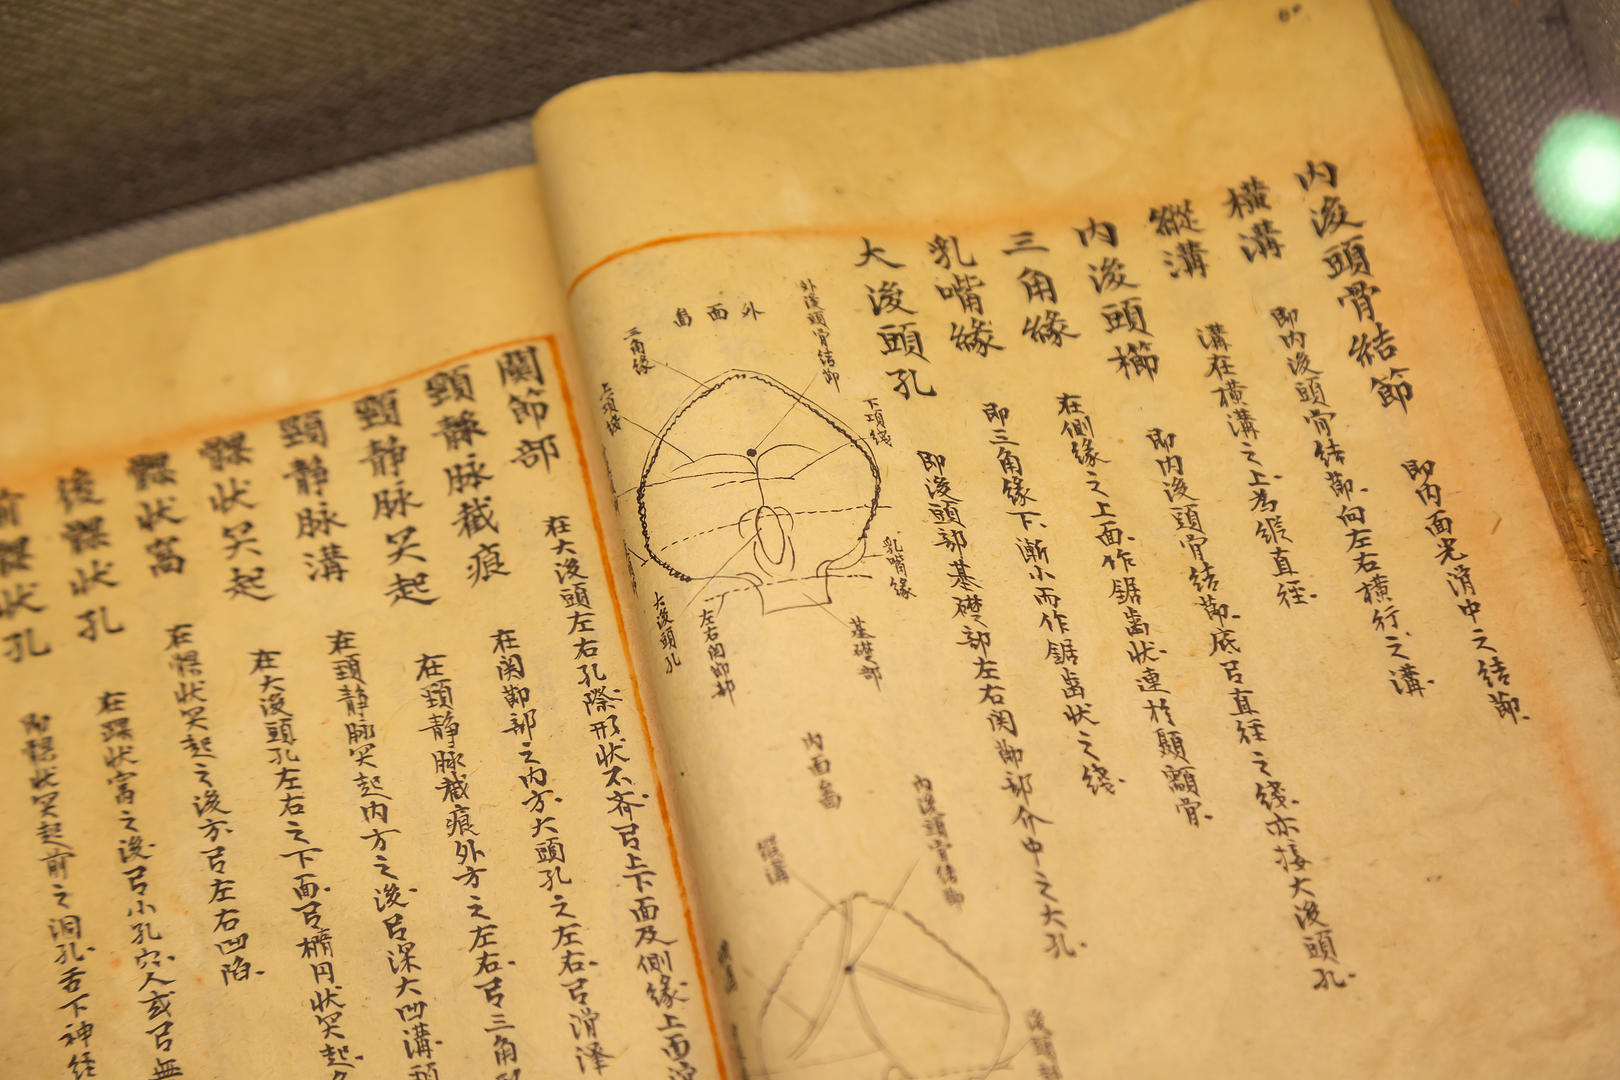 内後頭骨結節
即内面光滑中之结節.
橫溝
即内後頭骨结節.向左右橫行之溝.
縱溝
溝在橫溝之上為縱直徑.
内後頭櫛
即内後頭骨结節.底弓直径之綫.亦接大後頭孔.
三角緣
在側緣之上面.作鋸齒状.連於顳顬骨.
乳嘴緣
即三角緣下.漸小而作鋸齒状之綫.
大後頭孔
即後頭部基礎部左右関節部介中之大孔.
外面畧
外後頭骨结節
三角緣
上項綫
下項綫
乳嘴緣
大後頭孔
左右関節部
基礎部
内面畧
内後頭骨结節
縱溝
關節部
在大後頭左右孔際.形状不齐.弓上下面及側緣.上面
頸静脉截痕
在関節部之内方.大頭孔之左右.弓滑澤
頸静脉突起
在頸静脉截痕外方之左右.弓三角
頸静脉溝
在頸静脉突起内方之後.弓深大凹溝.
髁状突起
在大後頭孔左右之下面.弓橢円状突起.
髁状窩
在髁状突起之後方.弓左右凹陷.
後髁状孔
在髁状窩之後.弓小孔穴.人或弓無
前髁状孔
即髁状突起前之洞孔.舌下神经